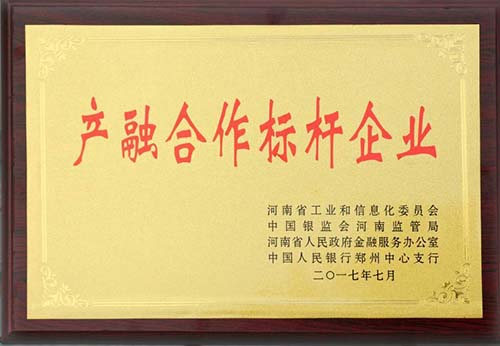 产融合作标杆企业
河南省工业和信息化委员会
中国银监会河南监管局
河南省人民政府金融服务办公室
中国人民银行郑州中心支行
二〇一七年七月